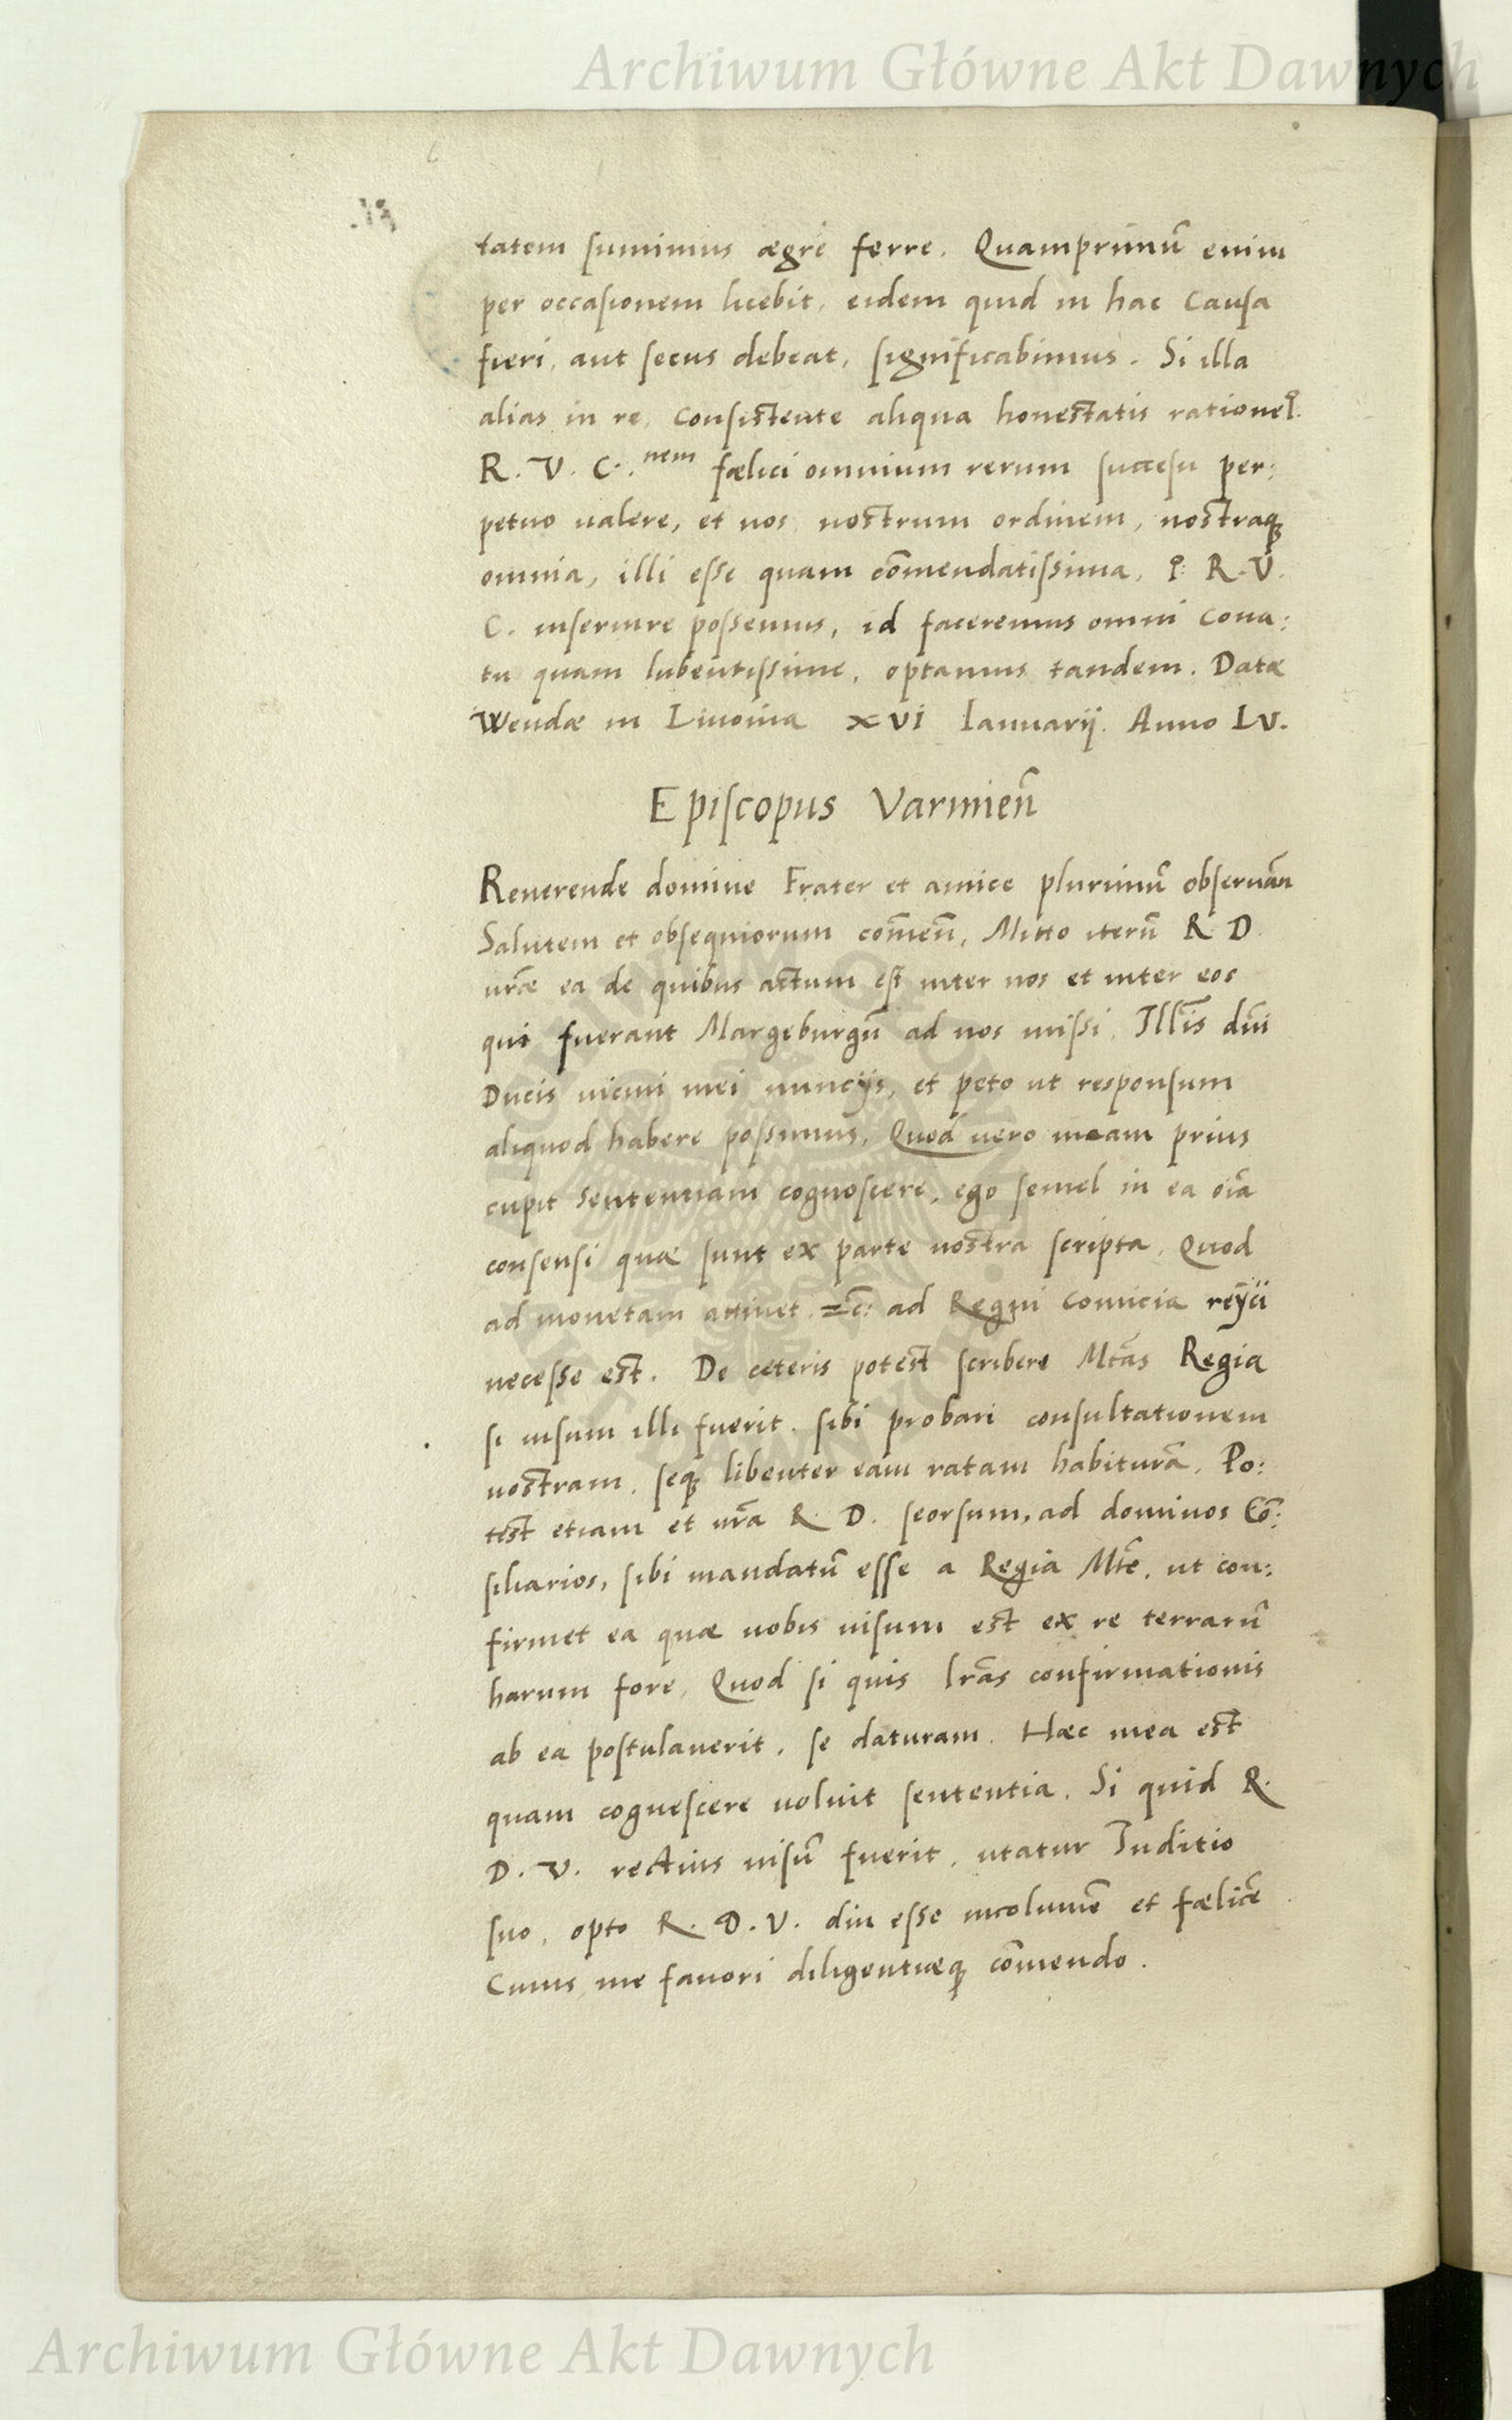 Archiwum Główne Akt Dawnych
tatem sumimus ægre ferre. Quamprimū enim
per occasionem licebit, eidem quid in hac causa
fieri, aut secus debeat, significabimus. Si illa
alias in re, consistente aliqua honestatis ratione
R. V. C. nem fœlici omnium rerum succesu per:
petuo ualere, et nos, nostrum ordinem, nostraq;
omnia, illi esse quam cōmendatissima, R. V.
C. inseruire possemus, id faceremus omni cona:
tu quam lubentissime, optamus tandem. Datæ
Wendæ in Liuonia xvi Ianuarij. Anno LV.
Episcopus Varmieñ
Reuerende domine Frater et amice plurimū obseruāñ
Salutem et obsequiorum com̄eñ, Mitto iterū R D
ur̄æ ea de quibus actum est inter nos et inter eos
qui fuerant Margeburgū ad nos missi. Ill̄is dn̄i
Ducis uicini mei nuncijs, et peto ut responsum
aliquod habere possimus, Quod uero meam prius
cupit sententiam cognoscere, ego semel in ea oīa
consensi quæ sunt ex parte nostra scripta, Quod
ad monetam attinet ad Regni comicia reÿci
necesse est. De ceteris potest scribere Mtās Regia
si uisum illi fuerit, sibi probari consultationem
nostram, seq; libenter eam ratam habiturā, Po:
test etiam et ur̄a R. D. seorsum, ad dominos Cō:
siliarios, sibi mandatū esse a Regia Mtē, ut con:
firmet ea quæ nobis uisum est ex re terrarū
harum fore, Quod si quis lr̄as confirmationis
ab ea postulauerit, se daturam. Hæc mea est
quam cognescere uoluit sententia. Si quid R.
D. V. rectius uisū fuerit, utatur Iuditio
suo, opto R. D. V. diu esse incolumē et fœlicē
Cuius me fauori diligentiæq; cōmendo.
Archiwum Główne Akt Dawnych